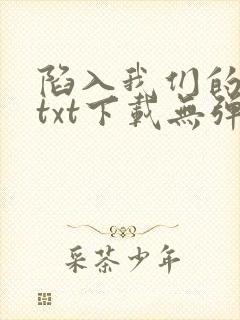 陷入我们的
txt下載無彈
采茶少年